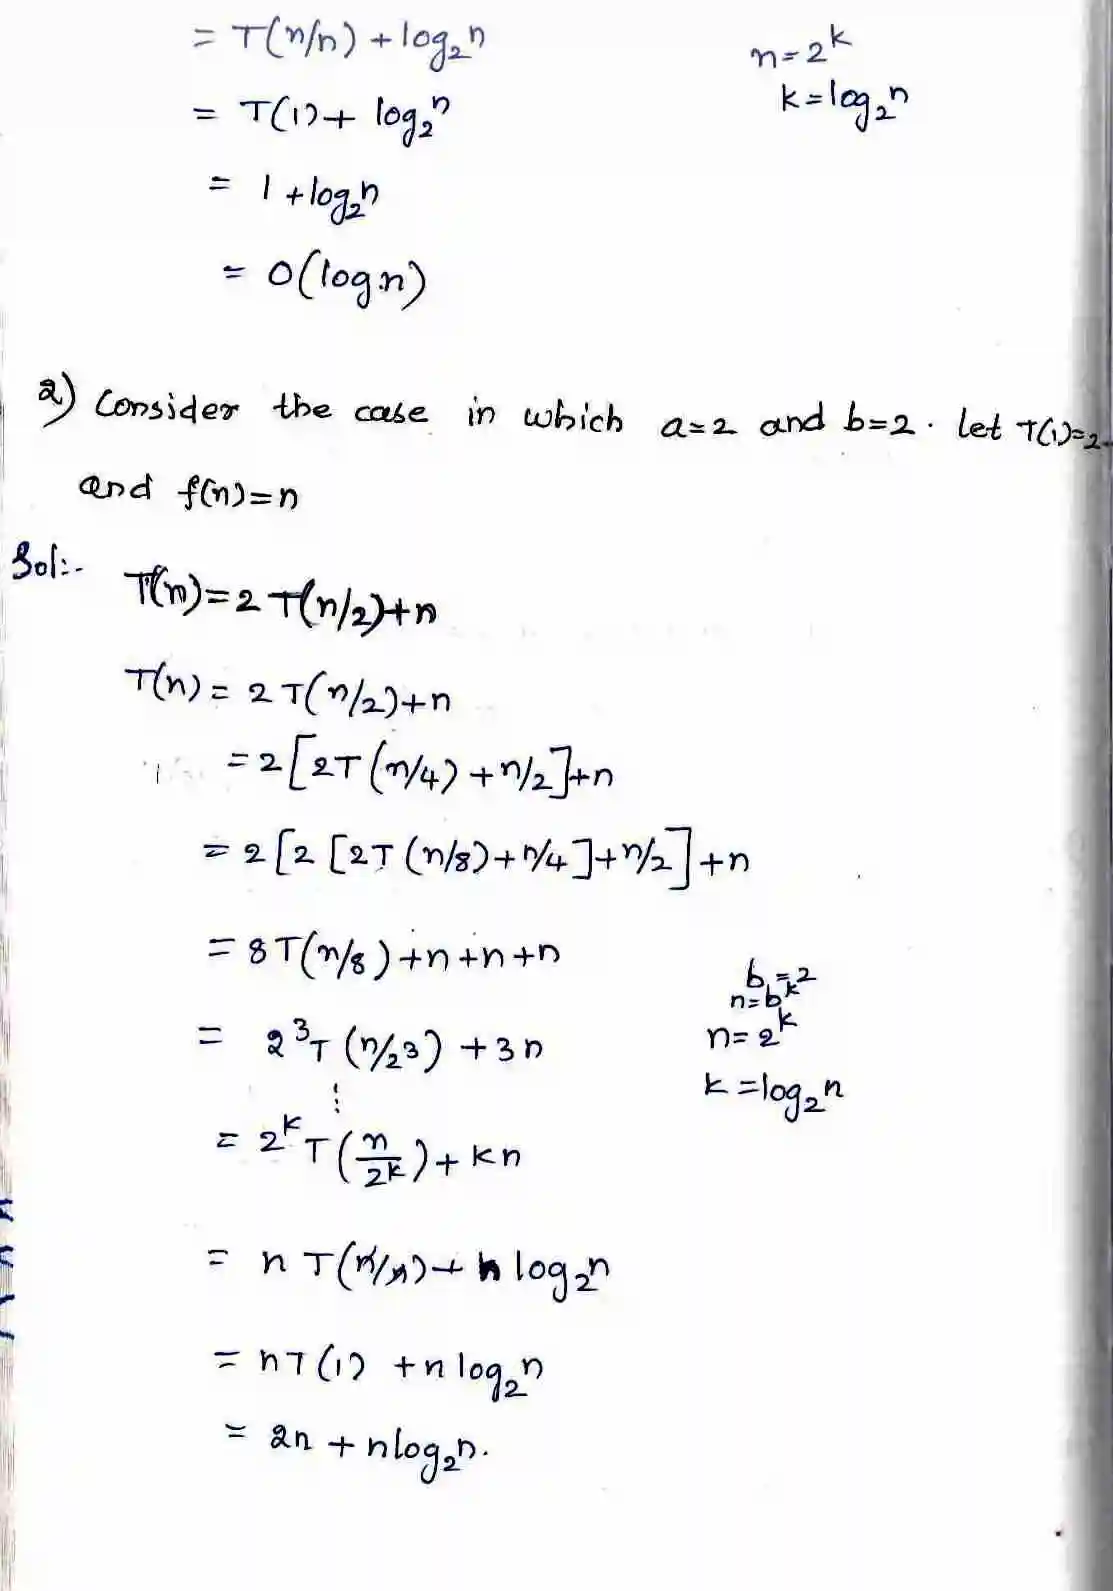 = T(n/n) + log₂n
n=2ᵏ
k=log₂n
= T(1) + log₂n
= 1 + log₂n
= O(log n)
2) Consider the case in which a=2 and b=2. let T(1)=2
and f(n)=n
Sol:-
T(n)=2T(n/2)+n
T(n) = 2T(n/2)+n
=2[2T(n/4)+n/2]+n
=2[2[2T(n/8)+n/4]+n/2]+n
=8T(n/8)+n+n+n
b=2
n=bᵏ
= 2³T(n/2³)+3n
n=2ᵏ
⋮
k=log₂n
= 2ᵏT(n/2ᵏ)+kn
= nT(n/n)+n log₂n
= nT(1) + n log₂n
= 2n + nlog₂n.